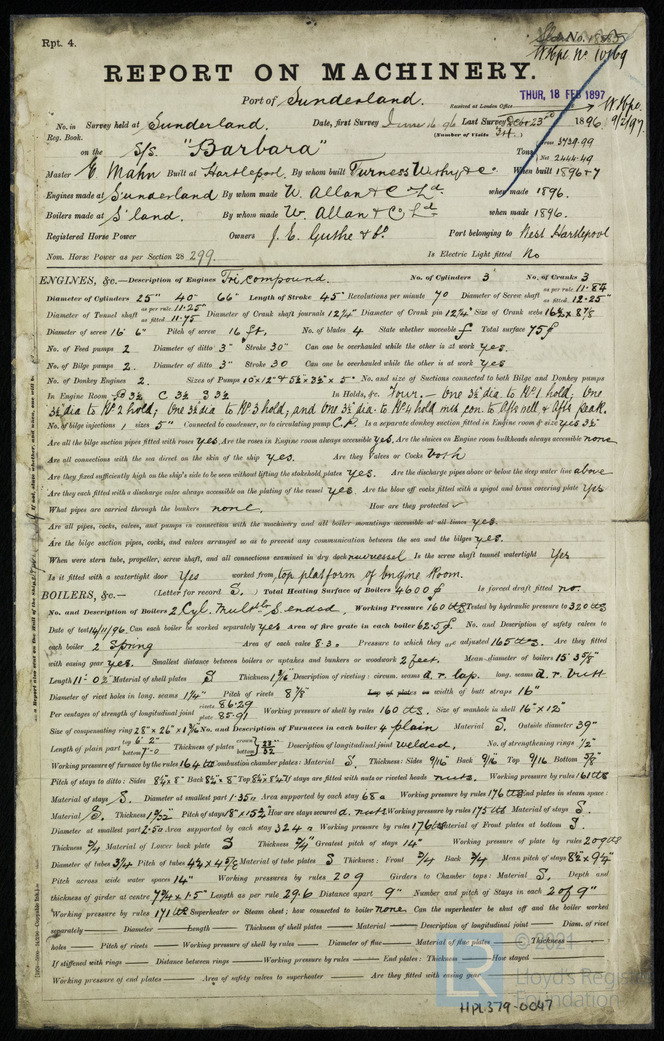 Rpt. 4.
Sld. No. 18485
W.Hpl. No. 10169
REPORT ON MACHINERY.
Port of Sunderland.
THUR, 18 FEB 1897
Received at London Office
No. in Survey held at Sunderland. Date, first Survey June 16 96 Last Survey 23rd 1896
Reg. Book. (Number of Visits 34)
on the S/S. "Barbara" Tons Gross 3739.99 Net 2444.49
Master G. Mahn Built at Hartlepool By whom built Furness Withy & Co When built 1896-7
Engines made at Sunderland By whom made W. Allan & Co Ld. when made 1896.
Boilers made at S'land. By whom made W. Allan & Co Ld. when made 1896.
Registered Horse Power Owners J. E. Guthe & Co. Port belonging to West Hartlepool
Nom. Horse Power as per Section 28 299. Is Electric Light fitted No
ENGINES, &c.—Description of Engines Tri compound. No. of Cylinders 3 No. of Cranks 3
Diameter of Cylinders 25" 40" 66" Length of Stroke 45" Revolutions per minute 70 Diameter of Screw shaft as per rule 11.84 as fitted 12.25"
Diameter of Tunnel shaft as per rule 11.25" as fitted 11.75 Diameter of Crank shaft journals 12¼" Diameter of Crank pin 12¼" Size of Crank webs 16½ x 8⅞
Diameter of screw 16' 6" Pitch of screw 16 ft. No. of blades 4 State whether moveable Total surface 75
No. of Feed pumps 2 Diameter of ditto 3" Stroke 30" Can one be overhauled while the other is at work yes.
No. of Bilge pumps 2 Diameter of ditto 3" Stroke 30 Can one be overhauled while the other is at work yes.
No. of Donkey Engines 2. Sizes of Pumps 10" x 12" & 5½ x 3½" x 5" No. and size of Suctions connected to both Bilge and Donkey pumps
In Engine Room P 3½ C 3½ S 3½ In Holds, &c. Four. - One 3½ dia to No 1 hold; One
3½ dia to No 2 hold; One 3½ dia to No 3 hold; and One 3½ dia to No 4 hold with con. to Aft well & Aft peak.
No. of bilge injections 1 sizes 5" Connected to condenser, or to circulating pump C.P. Is a separate donkey suction fitted in Engine room & size yes 3½"
Are all the bilge suction pipes fitted with roses yes. Are the roses in Engine room always accessible yes. Are the sluices on Engine room bulkheads always accessible none
Are all connections with the sea direct on the skin of the ship yes. Are they Valves or Cocks both
Are they fixed sufficiently high on the ship's side to be seen without lifting the stokehold plates yes. Are the discharge pipes above or below the deep water line above
Are they each fitted with a discharge valve always accessible on the plating of the vessel yes. Are the blow off cocks fitted with a spigot and brass covering plate yes
What pipes are carried through the bunkers none. How are they protected ✓
Are all pipes, cocks, valves, and pumps in connection with the machinery and all boiler mountings accessible at all times yes.
Are the bilge suction pipes, cocks, and valves arranged so as to prevent any communication between the sea and the bilges yes.
When were stern tube, propeller, screw shaft, and all connections examined in dry dock new vessel Is the screw shaft tunnel watertight Yes
Is it fitted with a watertight door Yes worked from top platform of Engine Room.
BOILERS, &c.— (Letter for record S.) Total Heating Surface of Boilers 4600 Is forced draft fitted no.
No. and Description of Boilers 2 Cyl. Multb. S. ended, Working Pressure 160 lbs Tested by hydraulic pressure to 320 lbs
Date of test 14/11/96. Can each boiler be worked separately yes Area of fire grate in each boiler 62.5 No. and Description of safety valves to
each boiler 2 Spring Area of each valve 8.30 Pressure to which they are adjusted 165 lbs. Are they fitted
with easing gear yes. Smallest distance between boilers or uptakes and bunkers or woodwork 2 feet. Mean diameter of boilers 15' 3⅝"
Length 11'. 02" Material of shell plates S Thickness Description of riveting: circum. seams d.r. lap. long. seams d.r. butt
Diameter of rivet holes in long. seams 1¼" Pitch of rivets 8⅞" Lap of plates or width of butt straps 16"
Per centages of strength of longitudinal joint rivets 86.29 plate 85.91 Working pressure of shell by rules 160 lbs. Size of manhole in shell 16" x 12"
Size of compensating ring No. and Description of Furnaces in each boiler 4 plain Material S. Outside diameter 39"
Length of plain part top 6'-2" bottom 7'-0 Thickness of plates crown bottom 23/32 Description of longitudinal joint welded. No. of strengthening rings
Working pressure of furnace by the rules 164 lbs Combustion chamber plates: Material S. Thickness: Sides 9/16" Back 9/16 Top 9/16 Bottom
Pitch of stays to ditto: Sides 8¼ x 8" Back 8¼ x 8" Top If stays are fitted with nuts or riveted heads nuts. Working pressure by rules 161 lbs
Material of stays S. Diameter at smallest part 1.35 Area supported by each stay 68 Working pressure by rules 176 lbs End plates in steam space:
Material S. Thickness Pitch of stays 18" x 15½" How are stays secured d. nuts Working pressure by rules 175 lbs Material of stays S.
Diameter at smallest part 2.50 Area supported by each stay 324 Working pressure by rules 176 lbs Material of Front plates at bottom S.
Thickness ¾ Material of Lower back plate S Thickness ¾" Greatest pitch of stays 14" Working pressure of plate by rules 209 lbs
Diameter of tubes 3¼ Pitch of tubes Material of tube plates S Thickness: Front ¾ Back ¾ Mean pitch of stays 8½ x 9¼"
Pitch across wide water spaces 14" Working pressures by rules 209 Girders to Chamber tops: Material S. Depth and
thickness of girder at centre 7¾ x 1.5" Length as per rule 29.6 Distance apart 9" Number and pitch of Stays in each 2 of 9"
Working pressure by rules 171 lbs Superheater or Steam chest; how connected to boiler none Can the superheater be shut off and the boiler worked
separately Diameter Length Thickness of shell plates Material Description of longitudinal joint Diam. of rivet
holes Pitch of rivets Working pressure of shell by rules Diameter of flue Material of flue plates Thickness
If stiffened with rings Distance between rings Working pressure by rules End plates: Thickness How stayed
Working pressure of end plates Area of safety valves to superheater Are they fitted with easing gear
© 2021
Lloyd's Register
Foundation
HPL379-0047